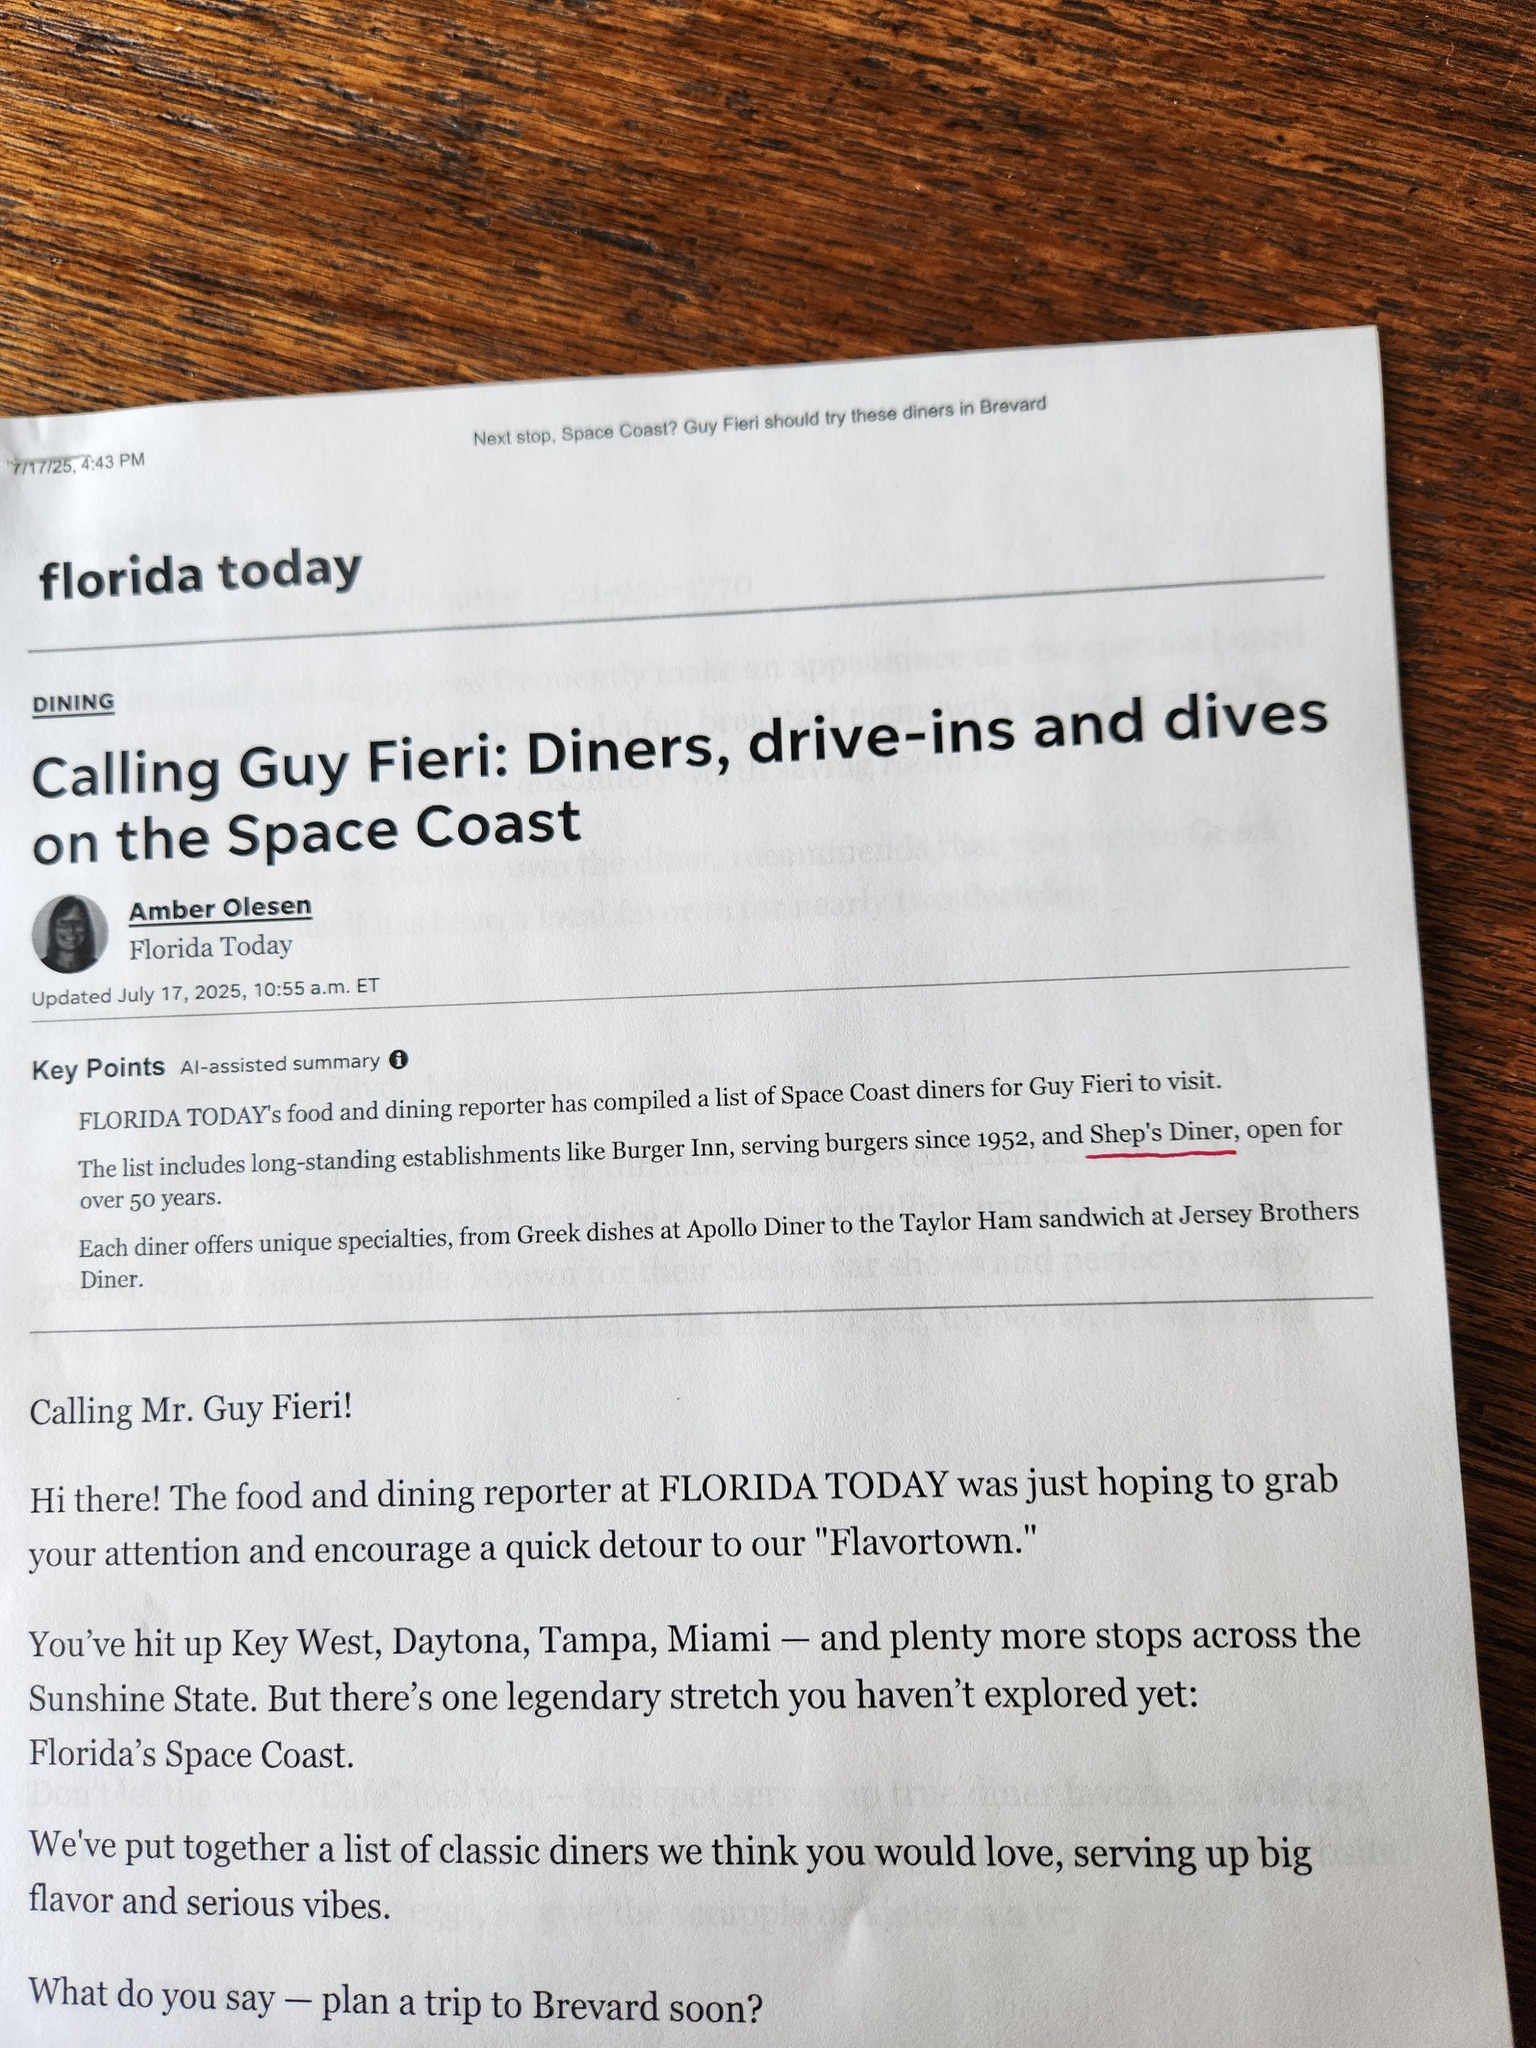 7/17/25, 4:43 PM
Next stop, Space Coast? Guy Fieri should try these diners in Brevard
florida today
DINING
Calling Guy Fieri: Diners, drive-ins and dives
on the Space Coast
Amber Olesen
Florida Today
Updated July 17, 2025, 10:55 a.m. ET
Key Points AI-assisted summary
FLORIDA TODAY's food and dining reporter has compiled a list of Space Coast diners for Guy Fieri to visit.
The list includes long-standing establishments like Burger Inn, serving burgers since 1952, and Shep's Diner, open for
over 50 years.
Each diner offers unique specialties, from Greek dishes at Apollo Diner to the Taylor Ham sandwich at Jersey Brothers
Diner.
Calling Mr. Guy Fieri!
Hi there! The food and dining reporter at FLORIDA TODAY was just hoping to grab
your attention and encourage a quick detour to our "Flavortown."
You’ve hit up Key West, Daytona, Tampa, Miami — and plenty more stops across the
Sunshine State. But there’s one legendary stretch you haven’t explored yet:
Florida’s Space Coast.
We've put together a list of classic diners we think you would love, serving up big
flavor and serious vibes.
What do you say — plan a trip to Brevard soon?